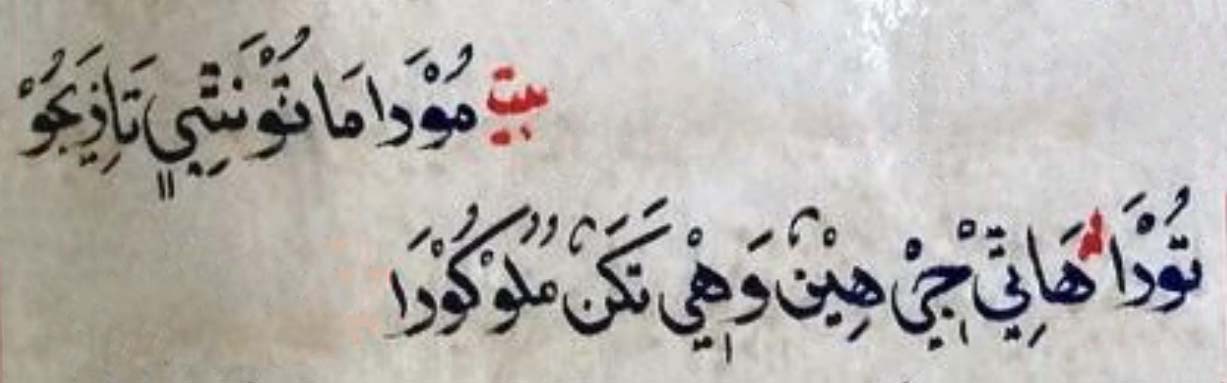 بيت مُوْدَا مَا تُوْنَتِيْ تَاذِيَجُوْ
تُوْدَا هَاتِيْ جِيْ هِيْنْ وَهِيْ تَكَنْ مُلُوْكُوْدَا